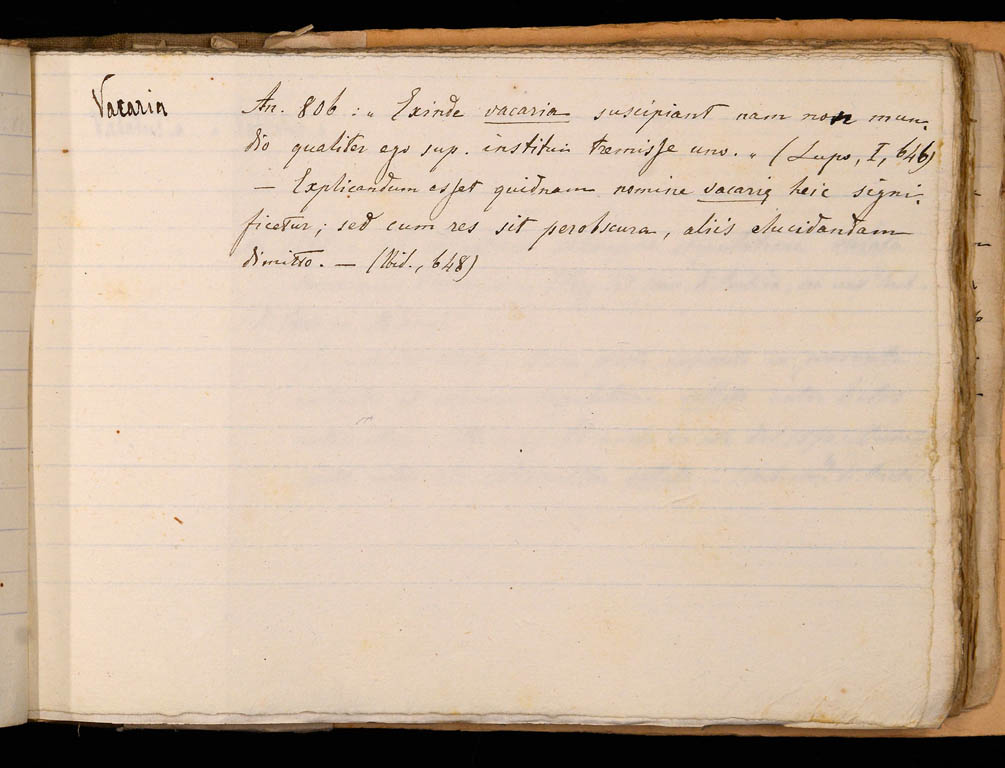 Vacaria
An. 806 : „ Exinde vacaria suscipiant nam non mun-
dio qualiter ego sup. institui tremisse uno. „ (Lupo, I, 646)
— Explicandum esset quidnam nomine vacarię heic signi-
ficetur; sed cum res sit perobscura, aliis elucidandam
dimitto. — (Ibid., 648)